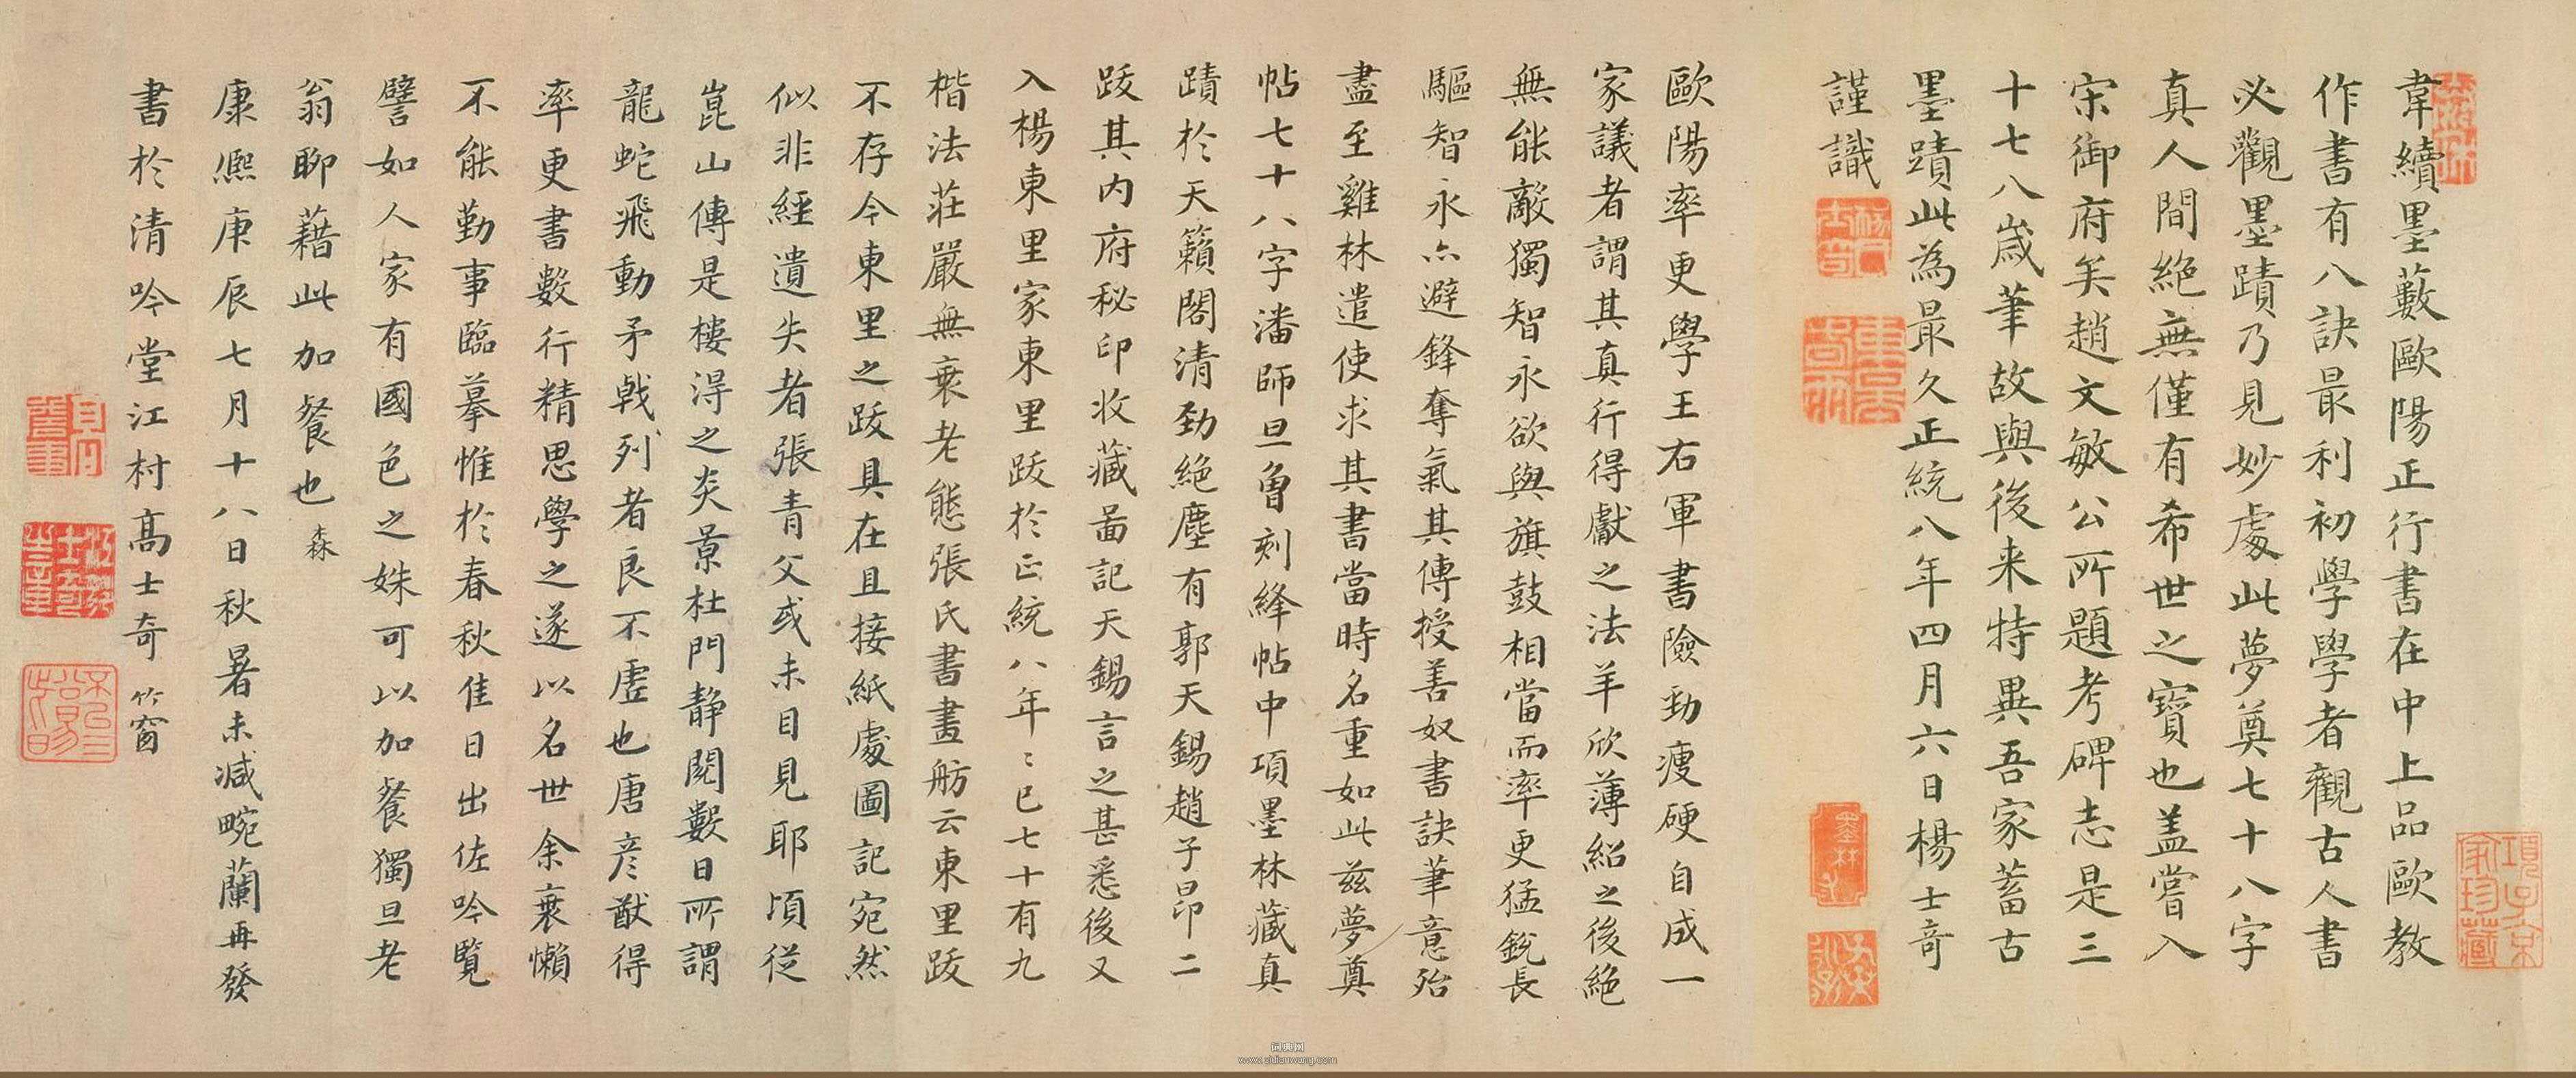 韋續墨藪歐陽正行書在中上品歐教
作書有八訣最利初學學者觀古人書
必觀墨蹟乃見妙處此夢奠七十八字
真人間絕無僅有希世之寶也蓋嘗入
宋御府矣趙文敏公所題考碑志是三
十七八歲筆故與後来特異吾家蓄古
墨蹟此為最久正統八年四月六日楊士奇
謹識
歐陽率更學王右軍書險勁瘦硬自成一
家議者謂其真行得獻之法羊欣薄紹之後絕
無能敵獨智永欲與旗鼓相當而率更猛銳長
驅智永亦避鋒奪氣其傳授善奴書訣筆意殆
盡至雞林遣使求其書當時名重如此茲夢奠
帖七十八字潘師旦曾刻絳帖中項墨林藏真
蹟於天籟閣清勁絕塵有郭天錫趙子昂二
跋其内府秘印收藏啚記天錫言之甚悉後又
入楊東里家東里跋於正統八年〻已七十有九
楷法莊嚴無衰老態張氏書畫舫云東里跋
不存今東里之跋具在且接紙處圖記宛然
似非經遺失者張青父或未目見耶頃從
崑山傳是樓得之炎景杜門静閱數日所謂
龍蛇飛動矛戟列者良不虛也唐彦猷得
率更書數行精思學之遂以名世余衰懶
不能勤事臨摹惟於春秋佳日出佐吟覽
譬如人家有國色之姝可以加餐獨旦老
翁聊藉此加餐也 森
康熙庚辰七月十八日秋暑未減畹蘭再發
書於清吟堂江村高士奇 竹窗
項子京家珍藏
墨林
词典网
www.cidianwang.com